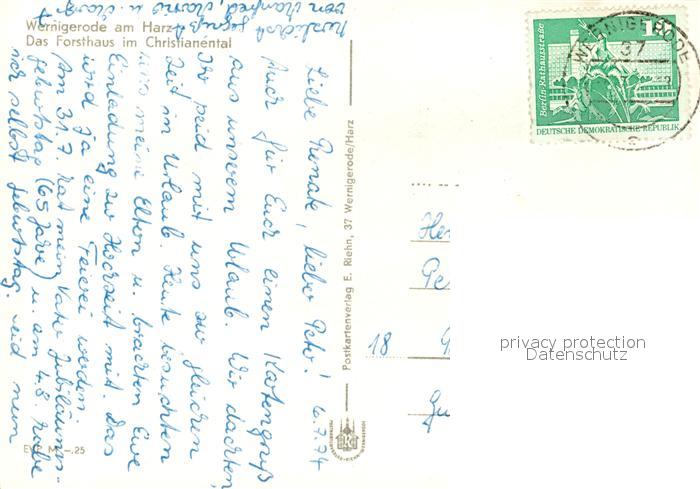 Wernigerode am Harz
Das Forsthaus im Christianental
Liebe Renate, lieber Peter! 6.7.74
Auch für Euch einen Kartengruß
aus unserem Urlaub. Wir dachten,
Ihr seid mit uns zur gleichen
Zeit im Urlaub. Heute besuchten
uns meine Eltern u. brachten Eure
Einladung zur Hochzeit mit. Das
wird ja eine Feierei werden.
Am 31.7. hat mein Vater Jubiläums-
geburtstag (65 Jahre) u. am 4.8. habe
ich selbst Geburtstag. Seid nun
herzlichst gegrüßt
von Manfred,
EVP M -.25
Postkartenverlag E. Riehn, 37 Wernigerode/Harz
WERNIGERODE
37
Berlin, Rathausstraße
DEUTSCHE DEMOKRATISCHE REPUBLIK
18
privacy protection
Datenschutz